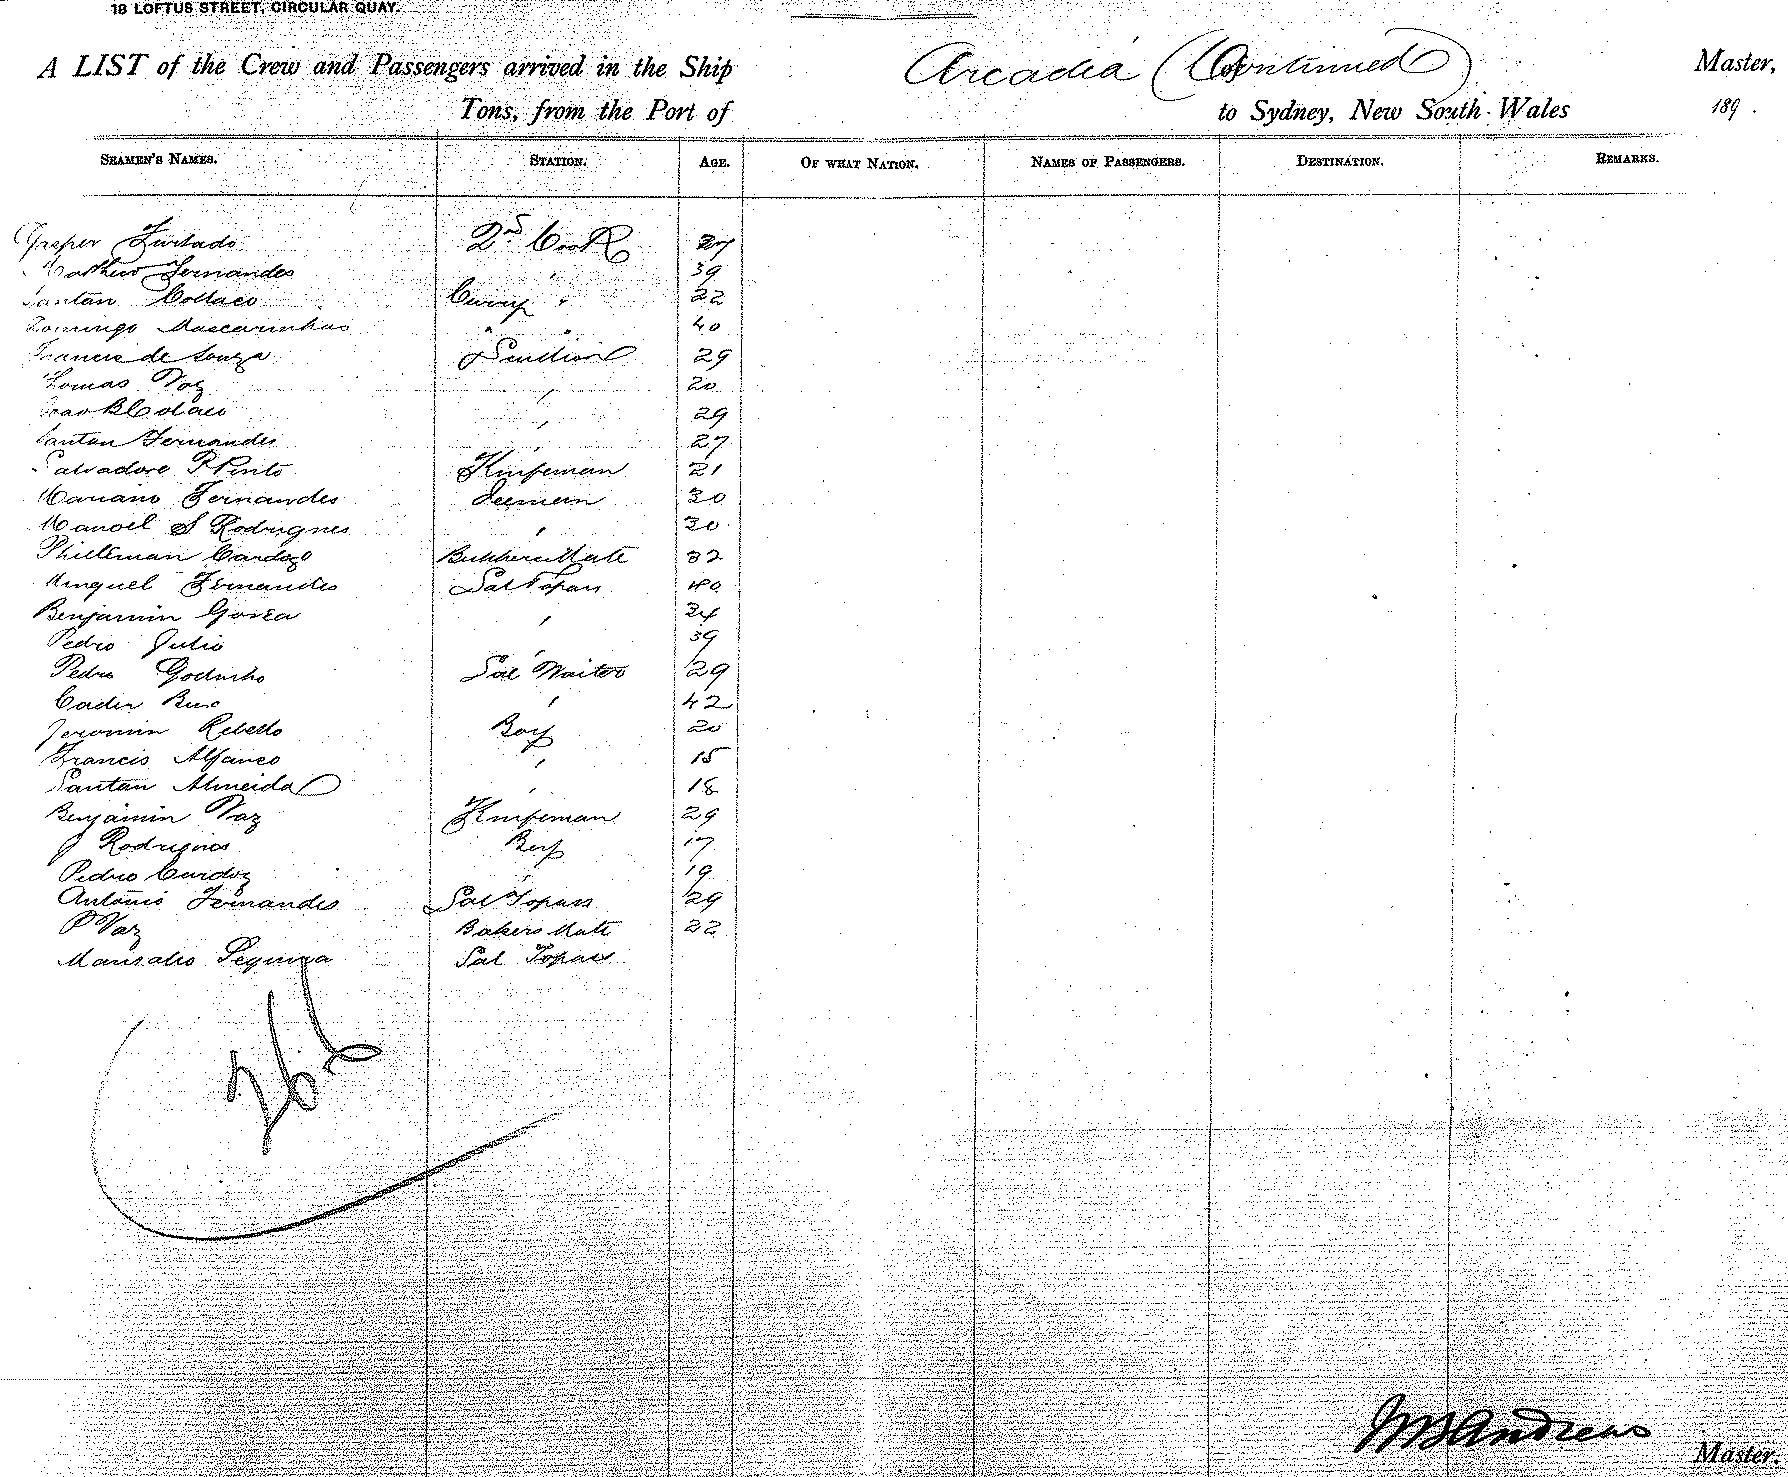 18 LOFTUS STREET, CIRCULAR QUAY.
A LIST of the Crew and Passengers arrived in the Ship Arcadia (Continued) Master,
Tons, from the Port of to Sydney, New South Wales 189 .
SEAMEN'S NAMES. STATION. AGE. OF WHAT NATION. NAMES OF PASSENGERS. DESTINATION. REMARKS.
Furtado 2nd Cook 27
Mathew Fernandes " 39
Santan Collaco Curry " 22
Domingo Mascarinhas " " 40
Francis de Souza Scullion 29
Tomas Vaz " 20
Joao B Colaco " 29
Santan Fernandes " 27
Salvadore P Pinto Knifeman 21
Mariano Fernandes 30
Manoel S Rodrigues " 30
Cardozo Butchers Mate 32
Minguel Fernandes Sal Topass 40
Benjamin Govea " 34
Pedro Julio " 39
Pedro Godinho Sal Waiter 29
Cader Bux " 42
Jeromin Rebello Boy 20
Francis Alfanco " 15
Santan Almeida " 18
Benjamin Vaz Knifeman 29
J Rodrigues Boy 17
Pedro Cardoz " 19
Antonio Fernandes Sal Topass 29
P Vaz Bakers Mate 22
Sequira Sal Topass
26
Andrews
Master.